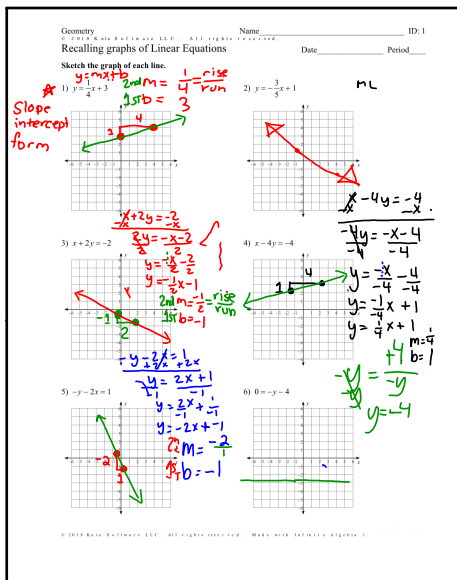 Geometry
Name
ID: 1
© 2018 Kuta Software LLC. All rights reserved.
Recalling graphs of Linear Equations
Date
Period
Sketch the graph of each line.
y=mx+b
1) y = 1/4 x + 3
2nd m = 1/4 = rise/run
1st b = 3
Slope
intercept
form
1
4
2) y = -3/5 x + 1
ML
3) x + 2y = -2
x+2y=-2
-x -x
2y/2 = -x-2/2
y = -x/2 - 2/2
y = -1/2 x - 1
2nd m = -1/2 = rise/run
1st b = -1
-1
2
4) x - 4y = -4
x-4y=-4
-x -x
-4y/-4 = -x-4/-4
y = -x/-4 - 4/-4
y = -1/-4 x + 1
y = 1/4 x + 1
m = 1/4
b = 1
1
4
5) -y - 2x = 1
-y-2x=1
+2x +2x
-y/-1 = 2x+1/-1
y = 2x/-1 + 1/-1
y = -2x + -1
m = -2/1
b = -1
-2
1
6) 0 = -y - 4
+4
y=-4
© 2018 Kuta Software LLC. All rights reserved. Made with Infinite Algebra 1.